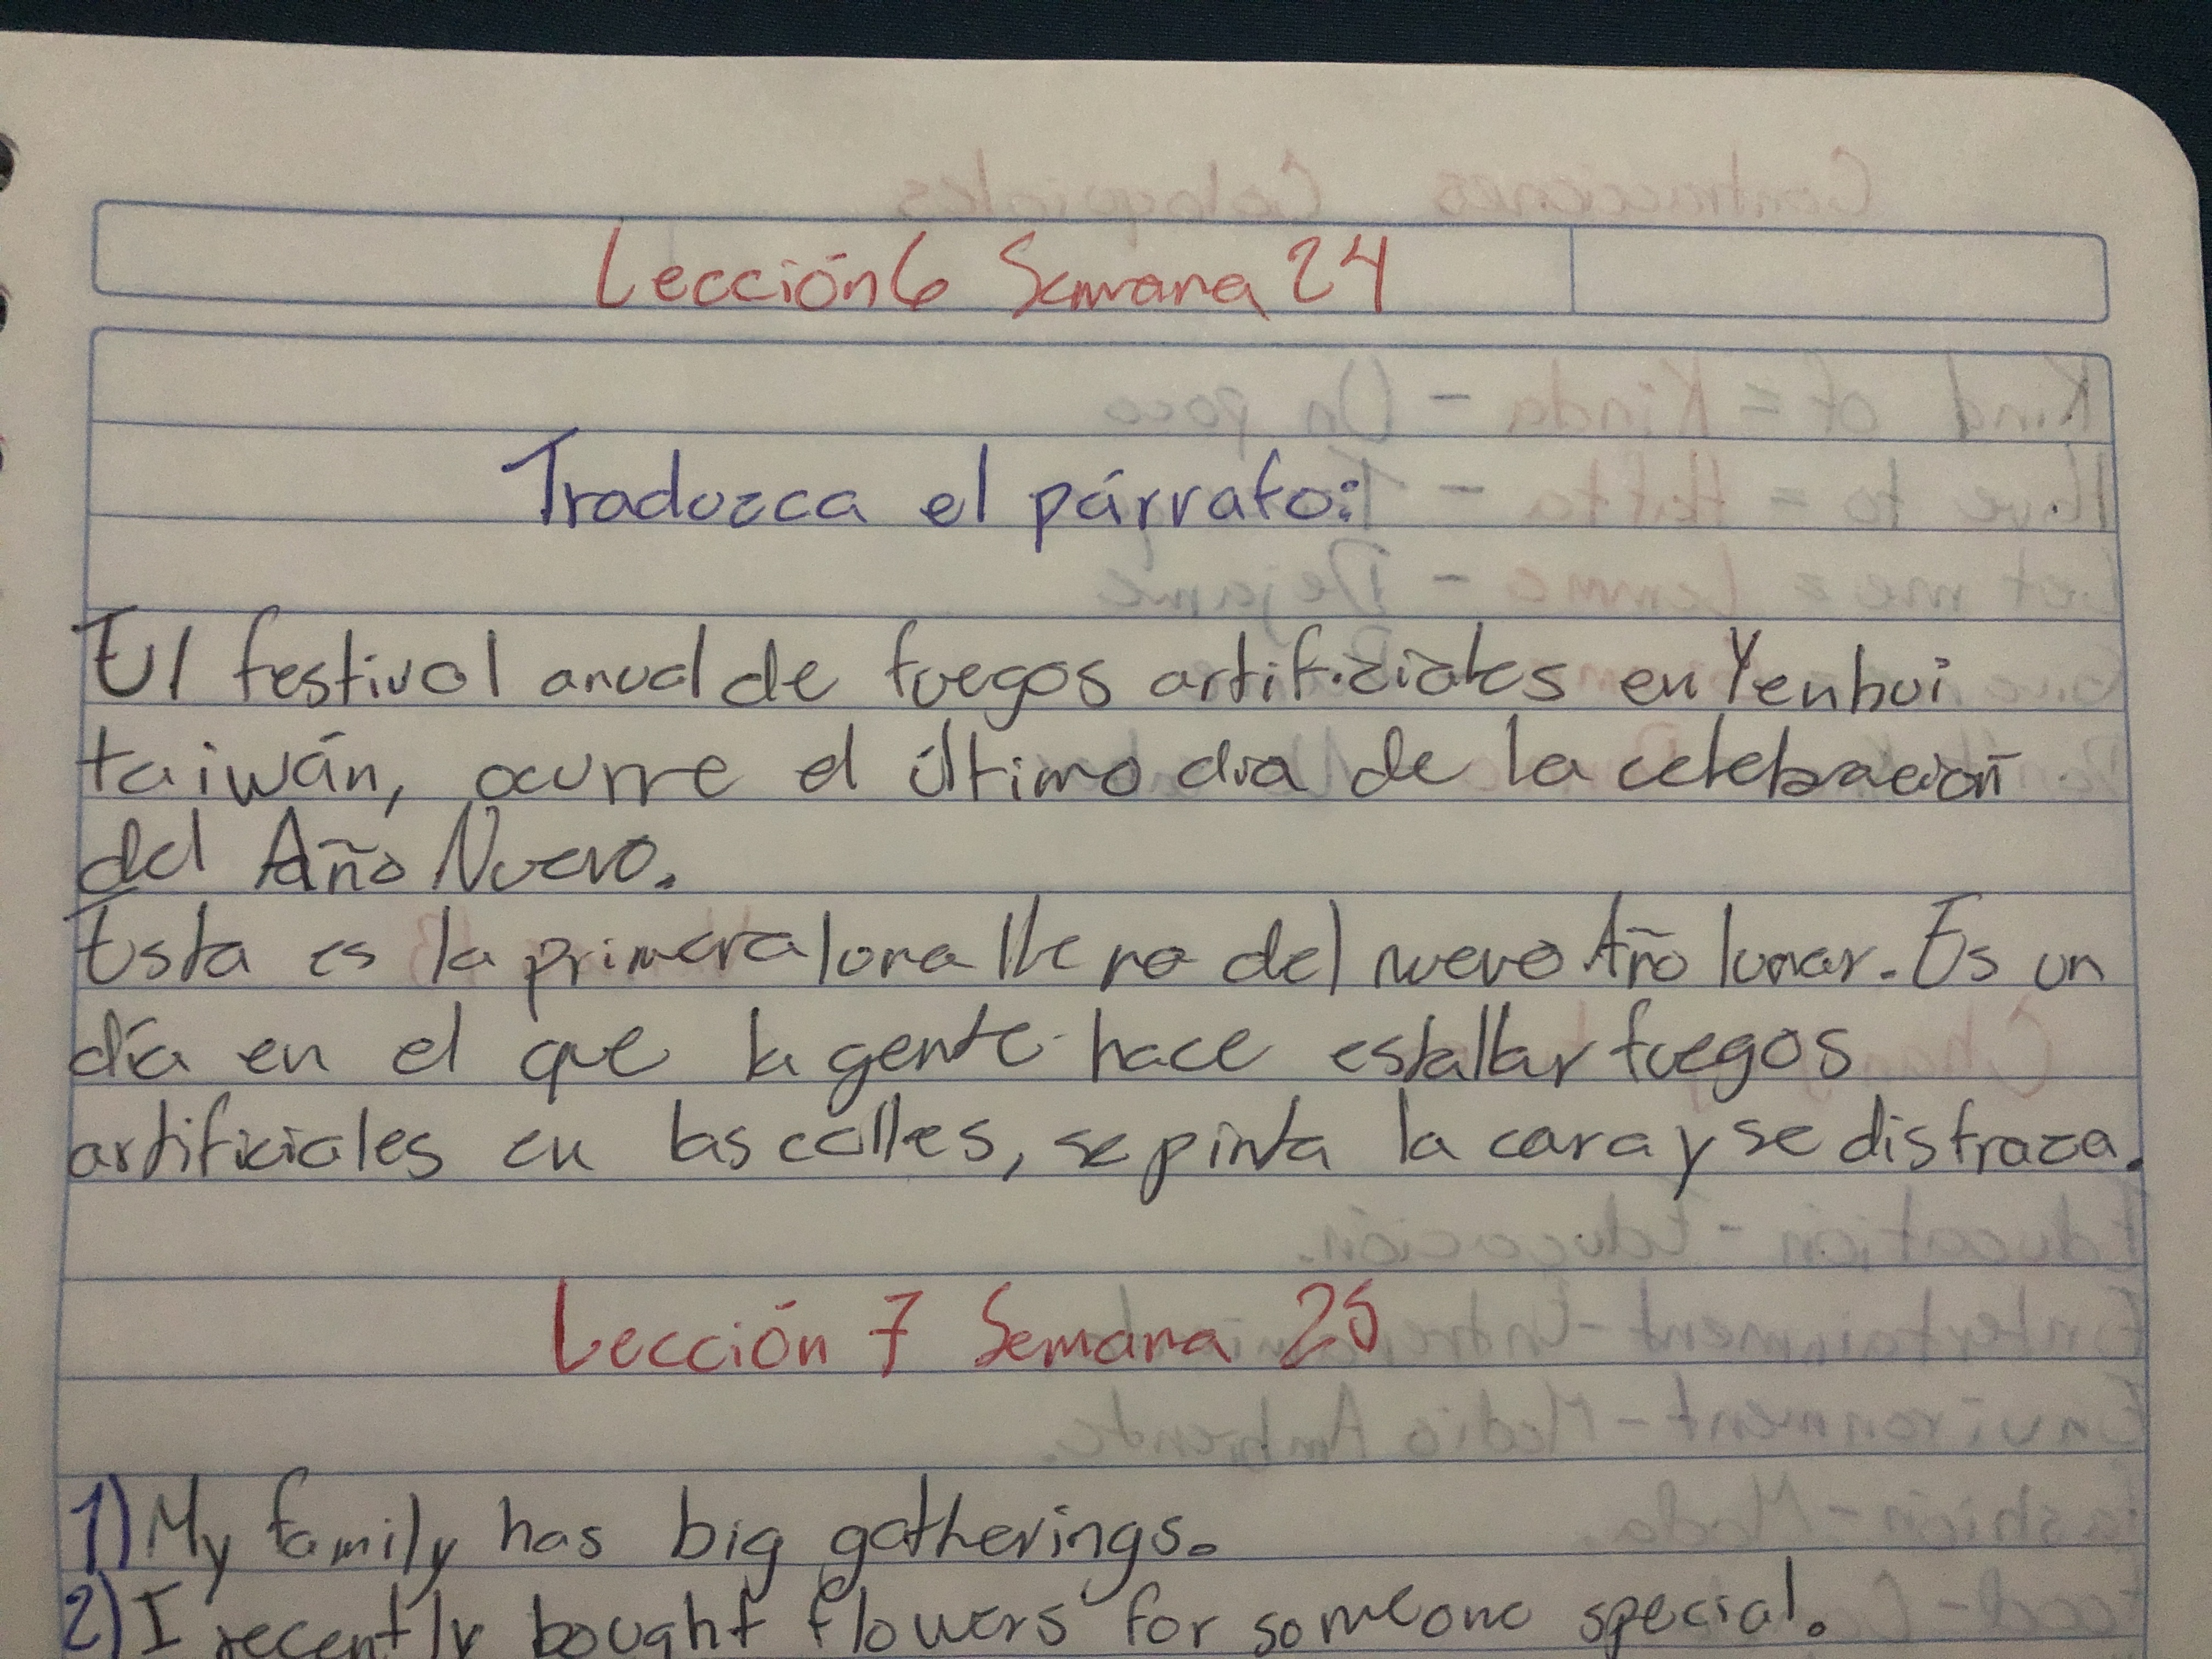 Lección 6 Semana 24
Traduzca el párrafo:
El festival anual de fuegos artificiales en Yenhui
taiwán, ocurre el último día de la celebración
del Año Nuevo.
Esta es la primera luna llena del nuevo Año lunar. Es un
día en el que la gente hace estallar fuegos
artificiales en las calles, se pinta la cara y se disfraza.
Lección 7 Semana 25
1) My family has big gatherings.
2) I recently bought flowers for someone special.